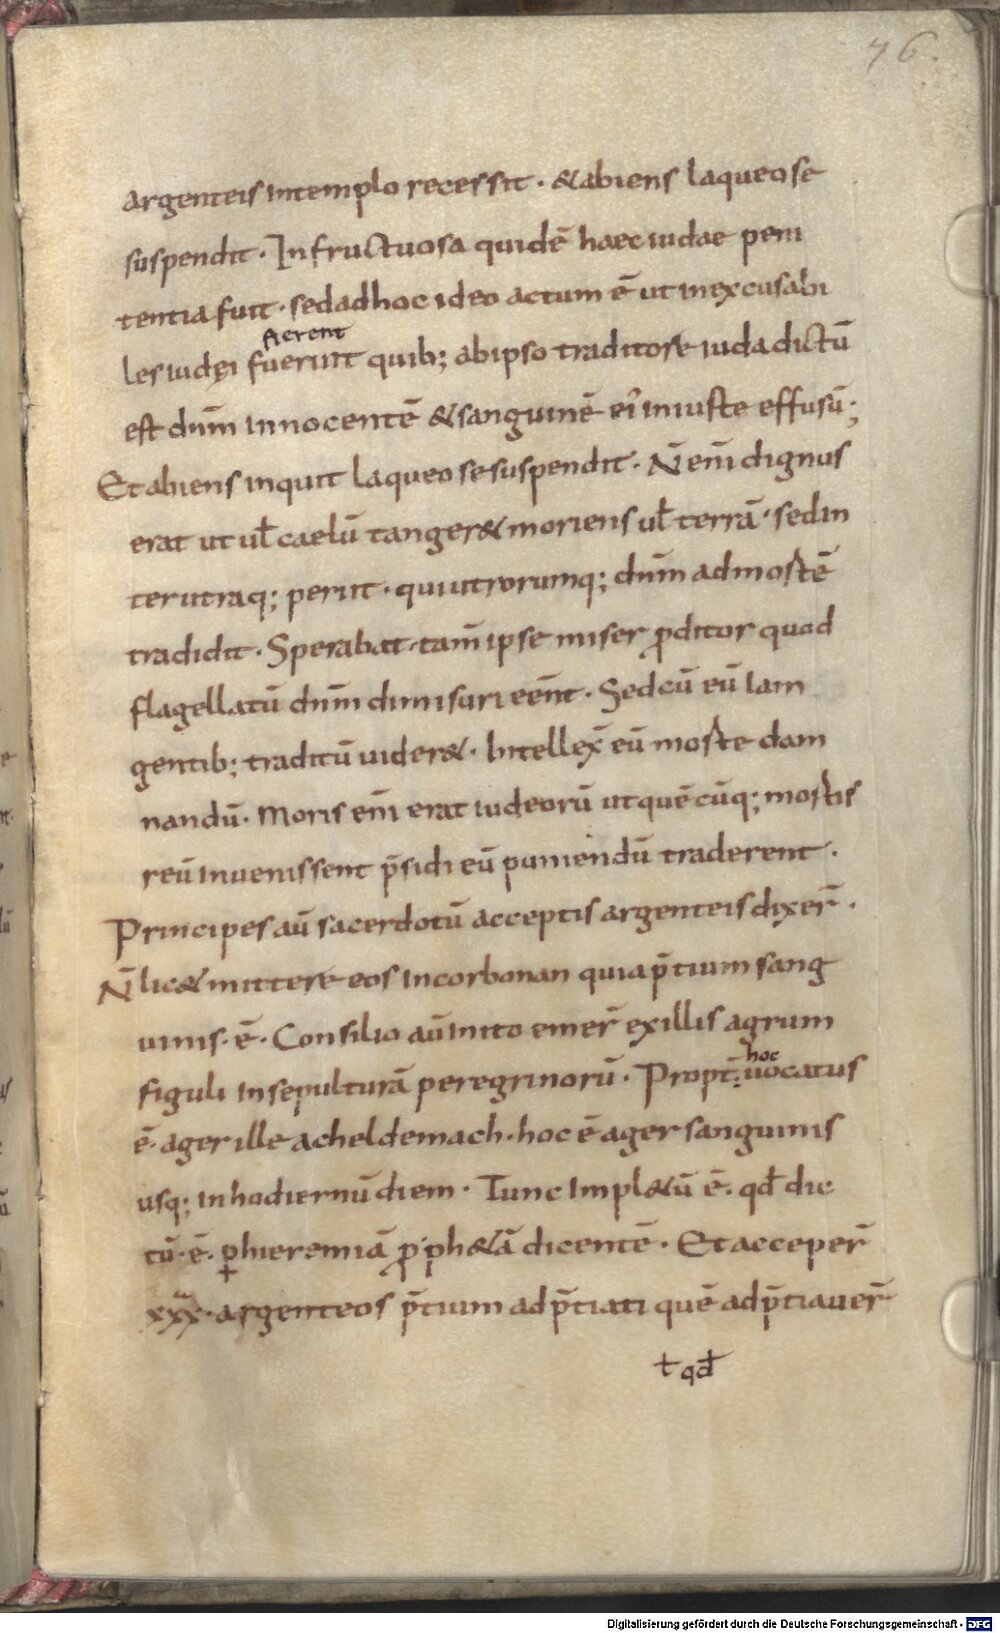 76.
argenteis intemplo recessit · &abiens laqueo se
suspendit · Infructuosa quidē haec iudae peni
tentia fuit · sed adhoc ideo actum ē ut inexcusabi
fierent
les iudęi fuerunt quib; abipso traditore iuda dictū
est dn̄m innocentē & sanguinē ei᾽ iniuste effusū;
Et abiens inquit laqueo se suspendit · N̄ eni̅ dignus
erat ut ul̄ caelū tanger& moriens ul̄ terrā · sed in
terutraq; periit · qui utrorumq; dn̄m ad mortē
tradidit · Sperabat tam̄ ipse miser ꝓditor quod
flagellatū dn̄m dimisuri een̄t · Sed cū eū iam
gentib; traditū uider& · Intellex̄ eū morte dam
nandū · Moris eni̅ erat iudeorū ut quē cūq; mortis
reū inuenissent p̄sidi eū puniendū traderent ·
Principes aū sacerdotū acceptis argenteis dixer̄ ·
N̄ lic& mittere eos incorbonan quia p̄tium sang
uinis · ē · Consilio aū inito emer̄ exillis agrum
figuli insepulturā peregrinorū · Propt̄ hoc uocatus
ē · ager ille acheldemach · hoc ē ager sanguinis
usq; in hodiernū diem · Tunc impl&ū ē · qd̄ dic
tū · ē · ꝑ hieremiā ꝓph&ā dicentē · Et acceper̄
xxx · argenteos p̄tium adp̄tiati quē adp̄tiauer̄
ł qd̄
Digitalisierung gefördert durch die Deutsche Forschungsgemeinschaft - DFG